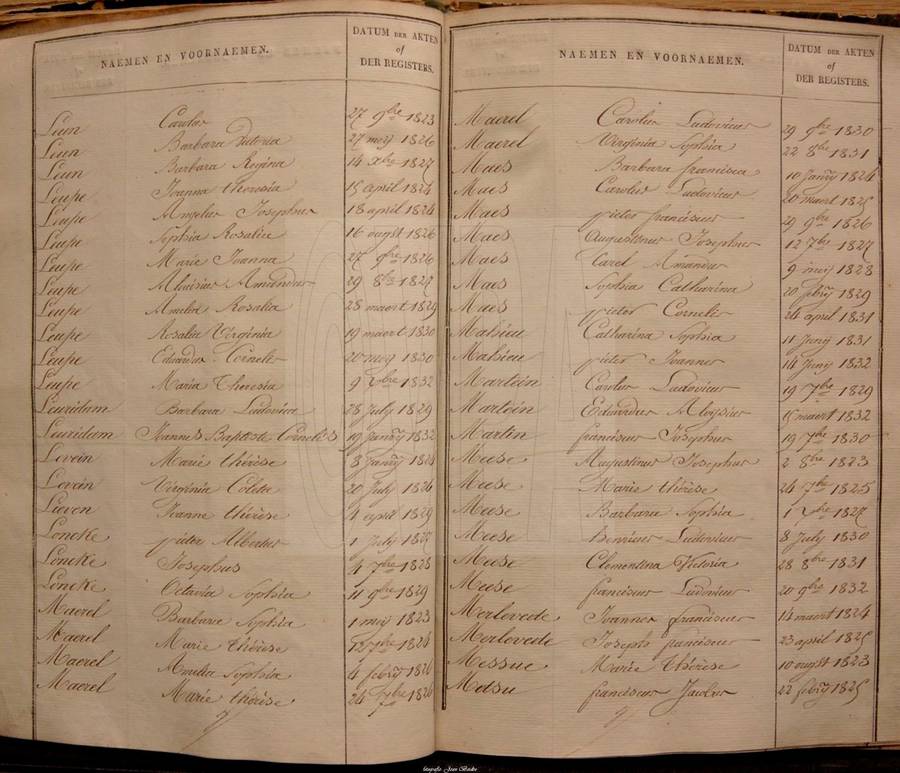 NAEMEN EN VOORNAEMEN.
DATUM DER AKTEN
of
DER REGISTERS.
Leun Carolus 27 9bre 1823
Leun Barbara Victoria 27 mey 1826
Leun Barbara Regina 14 xbre 1827
Leupe Joanna Theresia 15 april 1824
Leupe Angelus Josephus 18 april 1824
Leupe Sophia Rosalia 16 ougst 1826
Leupe Marie Joanna 27 9bre 1826
Leupe Aloisius Amandus 29 8bre
Leupe Amelia Rosalia 28 maert 1829
Leupe Rosalia Virginia 19 maert 1830
Leupe Eduardus Cornelis 20 mey 1830
Leupe Maria Theresia 9 1832
Leuridam Barbara Ludovica 28 July 1829
Leuridam Joannes Baptiste Cornelis 19 Janry 1832
Levein Marie Thérèse 8 Janry
Levein Virginia Colete 20 July 1826
Lieven Joanne thérèse 4 april 1829
Loncke pieter Albertus 1 July
Loncke Josephus 4 7bre 1825
Loncke Octavia Sophia 11 9bre 1829
Maerel Barbarie Sophia 1 mey 1823
Maerel Marie Thérèse 12 7bre 1824
Maerel Amelia Sophia 4 febry 1826
Maerel Marie thérèse 24 7bre 1826
NAEMEN EN VOORNAEMEN.
DATUM DER AKTEN
of
DER REGISTERS.
Maerel Carolus Ludovicus 29 9bre 1830
Maerel Virginia Sophia 22 8bre 1831
Maes Barbara francisca 10 Janry 1824
Maes Carolus Ludovicus 20 maert 1825
Maes pieter franciscus 29 9bre 1826
Maes Augustinus Josephus 12 7bre 1827
Maes Carel Amandus 9 mey 1828
Maes Sophia Catharina 20 febry 1829
Maes pieter Cornelis 24 april 1831
Malsieu Catharina Sophia 11 Juny 1831
Malsieu pieter Joannes 14 Juny 1832
Martein Carolus Ludovicus 19 7bre 1829
Martein Eduardus Aloysius 15 maert 1832
Martin franciscus Josephus 19 7bre 1830
Meese Augustinus Josephus 2 8bre 1823
Meese Marie thérèse 24 7bre 1825
Meese Barbara Sophia 1 1827
Meese Henricus Ludovicus 8 July 1830
Meese Clementina Victoria 28 8bre 1831
Meese franciscus Ludovicus 20 9bre 1832
Merlevede Joannes franciscus 14 maert 1824
Merlevede Joseph franciscus 23 april 1825
Messue Marie Thérèse 10 ougst 1823
Metsu franciscus Jacobus 22 febry 1825
fotografie Jean